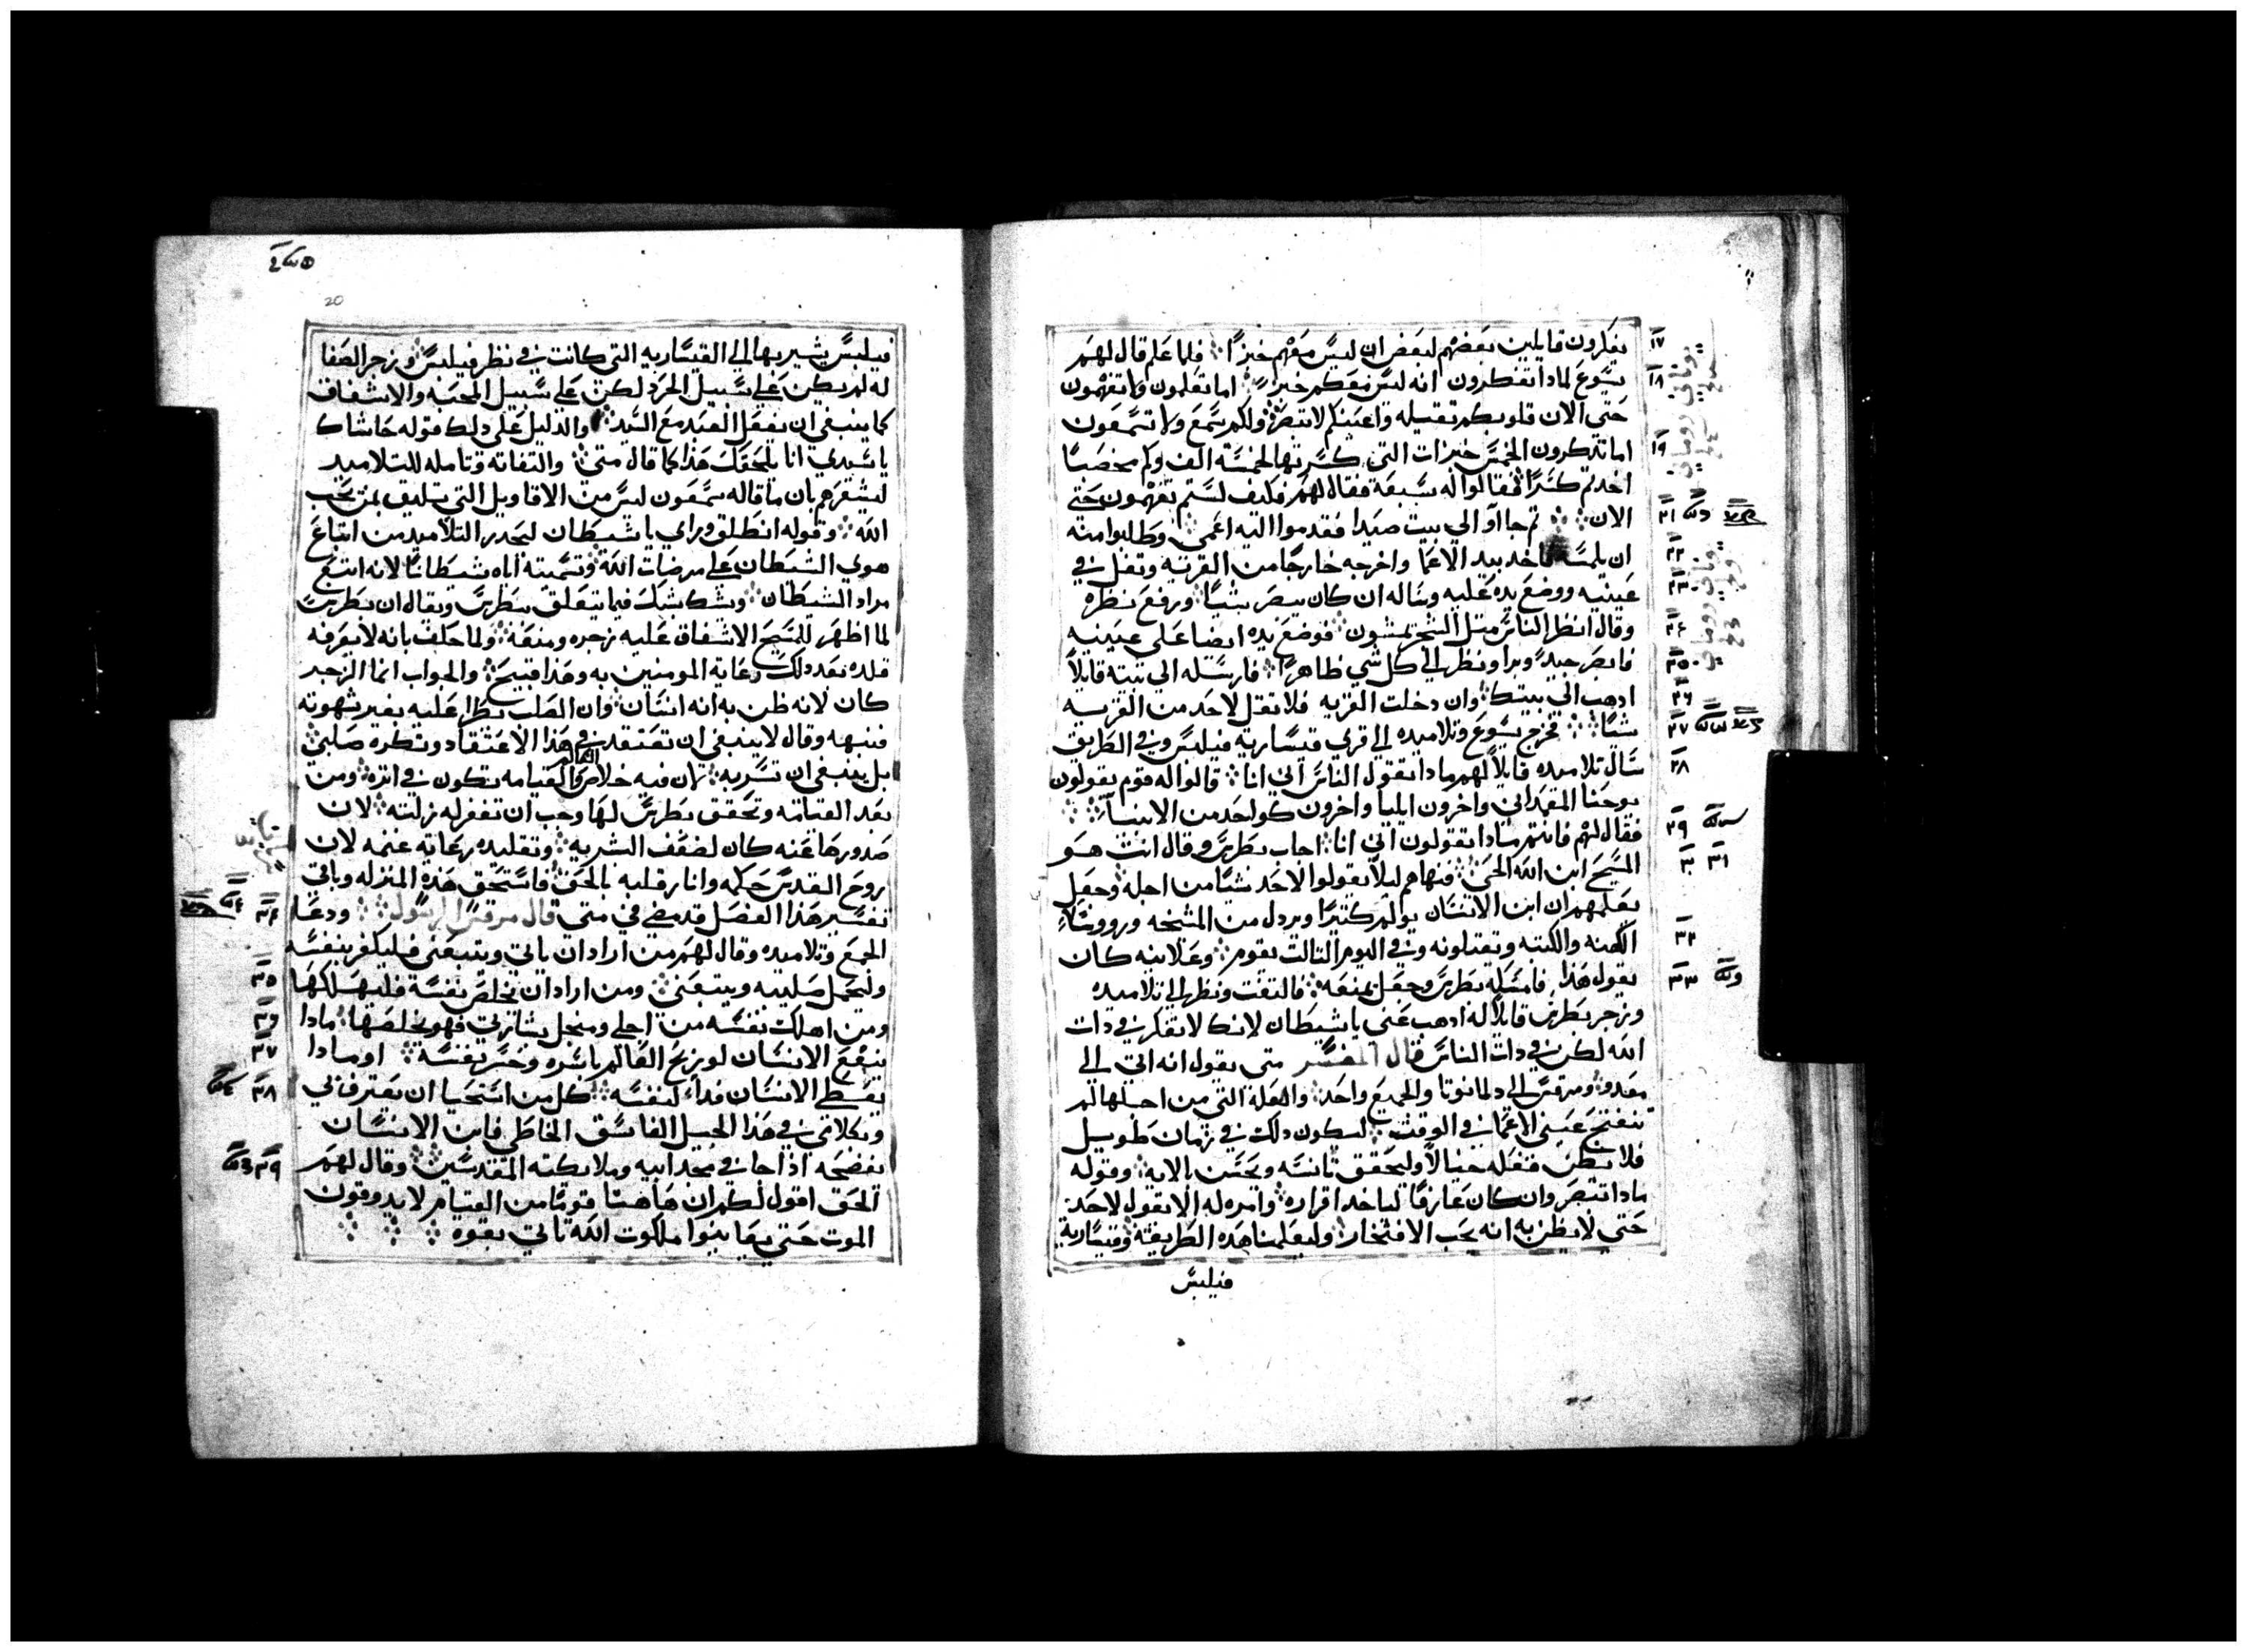 يفكرون قايلين بعضهم لبعض ان ليس معهم خبزًا فلما علم قال لهم
يسوع لمادا تفكرون انه ليس معكم خبز اما تعلمون ولا تفهمون
حتى الان قلوبكم تقيله واعينكم لا تبصر ولكم سمع ولا تسمعون
اما تدكرون الخمس خبزات التي كسرتها لخمسة الف وكم
اخدتم كسرًا فقالوا له سبعة فقال لهم فكيف لستم تفهمون حتى
الان تم جاآو الي بيت صيدا فقدموا اليه اعمى وطلبوا منه
ان يلمسه فاخد بيد الاعما واخرجه خارجًا من القريه وتفل في
عينيه ووضع يده عليه وساله ان كان يبصر شيًا ورفع نظره
وقال انظر الناس متل الشجر يمشون فوضع يده ايضا على عينيه
فابصر جيد وبرا ونظر الى كل شي ظاهرًا فارسله الي بيته قايلًا
ادهب الي بيتك وان دخلت القريه فلا تقل لاحد من القريه
شيًا فخرج يسوع وتلاميده الى قري قيساريه فيلبس وفي الطريق
سال تلاميده قايلًا لهم مادا تقول الناس اني انا قالوا له قوم يقولون
يوحنا المعمداني واخرون ايليا واخرون كواحد من الانبيا
فقال لهم فانتم مادا تقولون اني انا اجاب بطرس وقال انت هو
المسيح ابن الله الحي فنهاهم ليلا يقولوا لاحد شيًا من اجله وجعل
يعلمهم ان ابن الانسان يولم كتيرًا ويردل من المشيخه وروساء
الكهنه والكتبه ويقتلونه وفي اليوم التالت يقوم وعلانيه كان
يقول هذا فامسكه بطرس وجعل يمنعه فالتفت ونظر الى تلاميده
وزجر بطرس قايلًا له ادهب عني يا شيطان لانك لا تفكر في دات
الله لكن في دات الناس قال المفسر متى يقول انه اتي الى
مغدو ومرقس الى دلمانوتا والجميع واحد والعلة التي من اجلها لم
تنفتح عيني الاعما في الوقت ليكون دلك في زمان طويل
فلا يظن فعله خيالًا وليحقق تانسه وتحسن بالايه وقوله
مادا تبصر وان كان عارفًا لياخد اقراره وامره له الا يقول لاحد
حتى لا يظن به انه يحب الافتخار وليعلمنا هده الطريقة وقيساريه
فيلبس
20
فيلبس يشير بها الى القيساريه التي كانت في نظر فيلبس وزجر الصفا
له لم يكن على سبيل الحرد لكن على سبيل المحبه والاشفاق
كما ينبغي ان يفعل العبد مع السيد والدليل على دلك قوله حاشاك
يا سيدي انا يلحقك هذا كما قال متى والتفاته وتامله للتلاميد
ليشعرهم بان ما قاله سمعون ليس من الاقاويل التي تليق بمن يحب
الله وقوله انطلق وراي يا شيطان ليحدر التلاميد من اتباع
هوي الشيطان على مرضات الله وتسميته اياه شيطانًا لانه اتبع
مراد الشيطان وشك شك فيما يتعلق ببطرس ويقال ان بطرس
لما اظهر للمسيح الاشفاق عليه زجره ومنعه ولما حلف بانه لا يعرفه
قلده بعد دلك رعاية المومنين به وهذا قبيح والجواب انما الزجر
كان لانه ظن به انه انسان وان الصلب يطرا عليه بغير شهوته
فنبهه وقال لا ينبغي ان تعتقد في هذا الاعتقاد وتكره صلبي
بل ينبغي ان تسر به لان فيه خلاص العالم والقيامه تكون في اتره ومن
بعد القيامه وتحقق بطرس لها وجب ان تغفر له زلته لان
صدورها عنه كان لضعف البشريه وتقليده رعاية غنمه لان
روح القدس حكمه وانار قلبه بالحق فاستحق هذه المنزله وباقي
تفسير هذا الفصل قد مضى في متى قال مرقس الرسول ودعا
الجمع وتلاميده وقال لهم من اراد ان ياتي ويتبعني فليكفر بنفسه
وليحمل صليبه ويتبعني ومن اراد ان يخلص نفسه فليهلكها
ومن اهلك نفسه من اجلي ومن اجل بشارتي فهو يخلصها مادا
ينفع الانسان لو يربح العالم باسره وخسر نفسه او مادا
يعطي الانسان فداء لنفسه كل من استحيا ان يعترف بي
وبكلامي في هذا الجيل الفاسق الخاطي فابن الانسان
يفضحه اذا جا في مجد ابيه وملايكته المقدسين وقال لهم
الحق اقول لكم ان هاهنا قومًا من القيام لا يدوقون
الموت حتى يعاينوا ملكوت الله ياتي بقوه